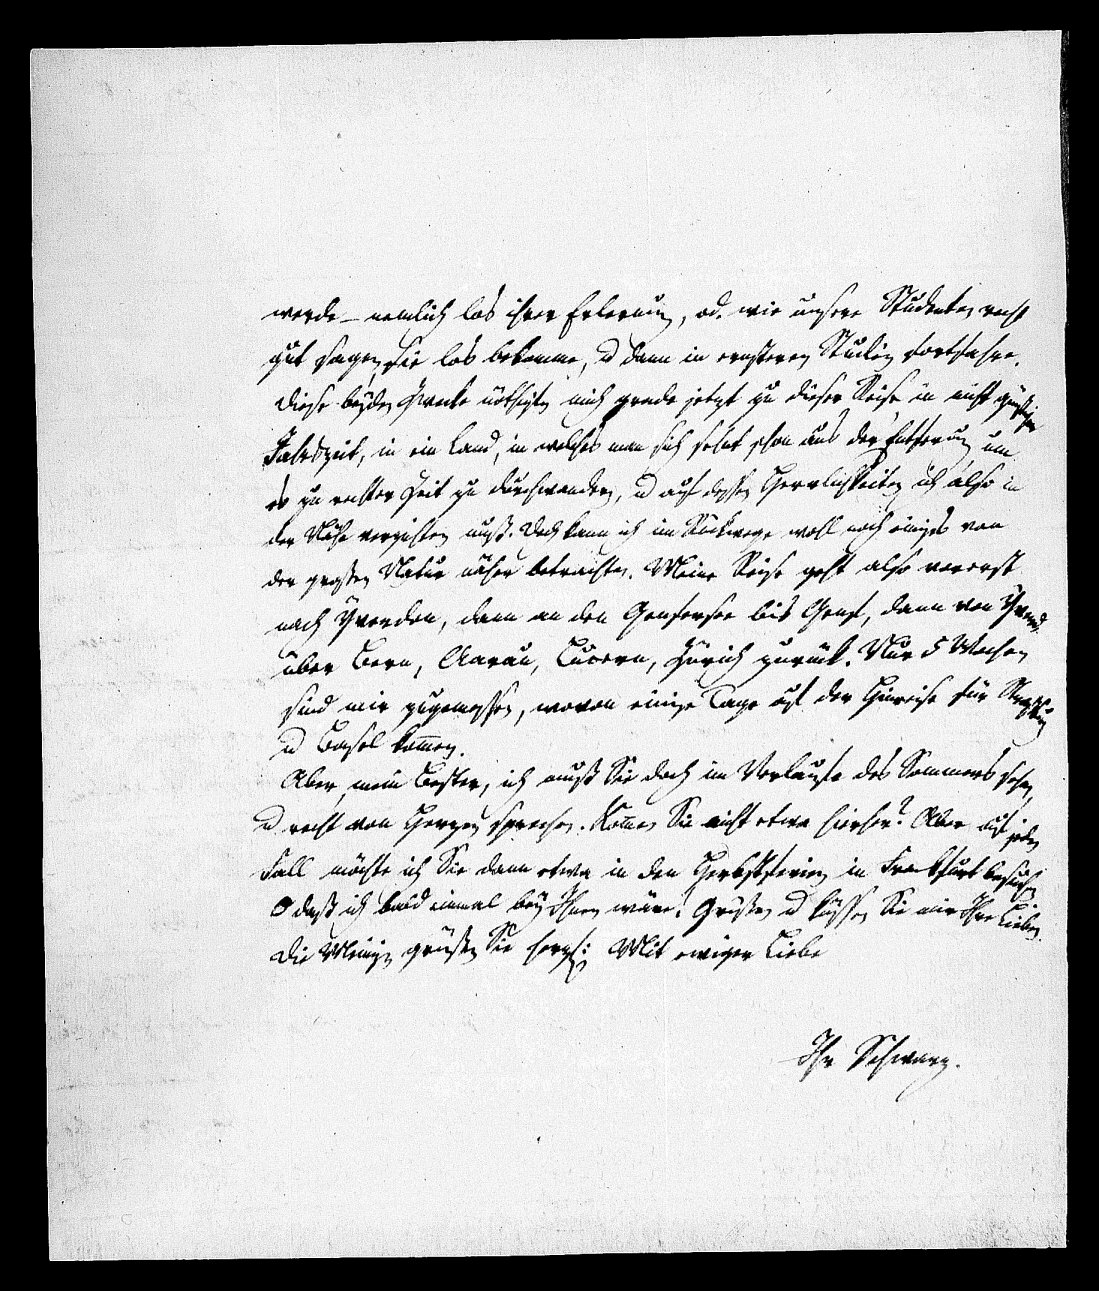 werde – nemlich los ihrer Erlerung, od. wie unsere Studenten recht
gut sagen, sie los bekomme, u dann in ernsteren Studien fortfahre.
Diese beyden Zwecke nöthigten mich grade jetzt zu dieser Reise in nicht günstiger
Jahrszeit, in ein Land, in welches man sich sehnt schon aus der Entfernung um
es zu rechter Zeit zu durchwandern, u auf dessen Herrlichkeiten ich also in
der Nähe verzichten muß. Doch kann ich im Rückwege wohl noch einiges von
der großen Natur näher betrachten. Meine Reise geht also vorerst
nach Yverden, dann an den Genfersee bis Genf, dann von Yverd.
über Bern, Aarau, Lucern, Zürich zurück. Nur 5 Wochen
sind mir zugemessen, wovon einige Tage auf der Hinreise für
u Basel kommen.
Aber, mein Bester, ich muß Sie doch im Verlaufe des Sommers sehen,
u recht von Herzen sprechen. Kommen Sie nicht etwa hierher? Aber auf jeden
Fall möchte ich Sie dann etwa in den Herbstferien in Frankfurt besuchen
O daß ich bald einmal bey Ihnen wäre! Grüßen u küssen Sie mir Ihre Lieben.
Die Meinigen grüßen Sie herzl: Mit ewiger Liebe
Ihr Schwarz.